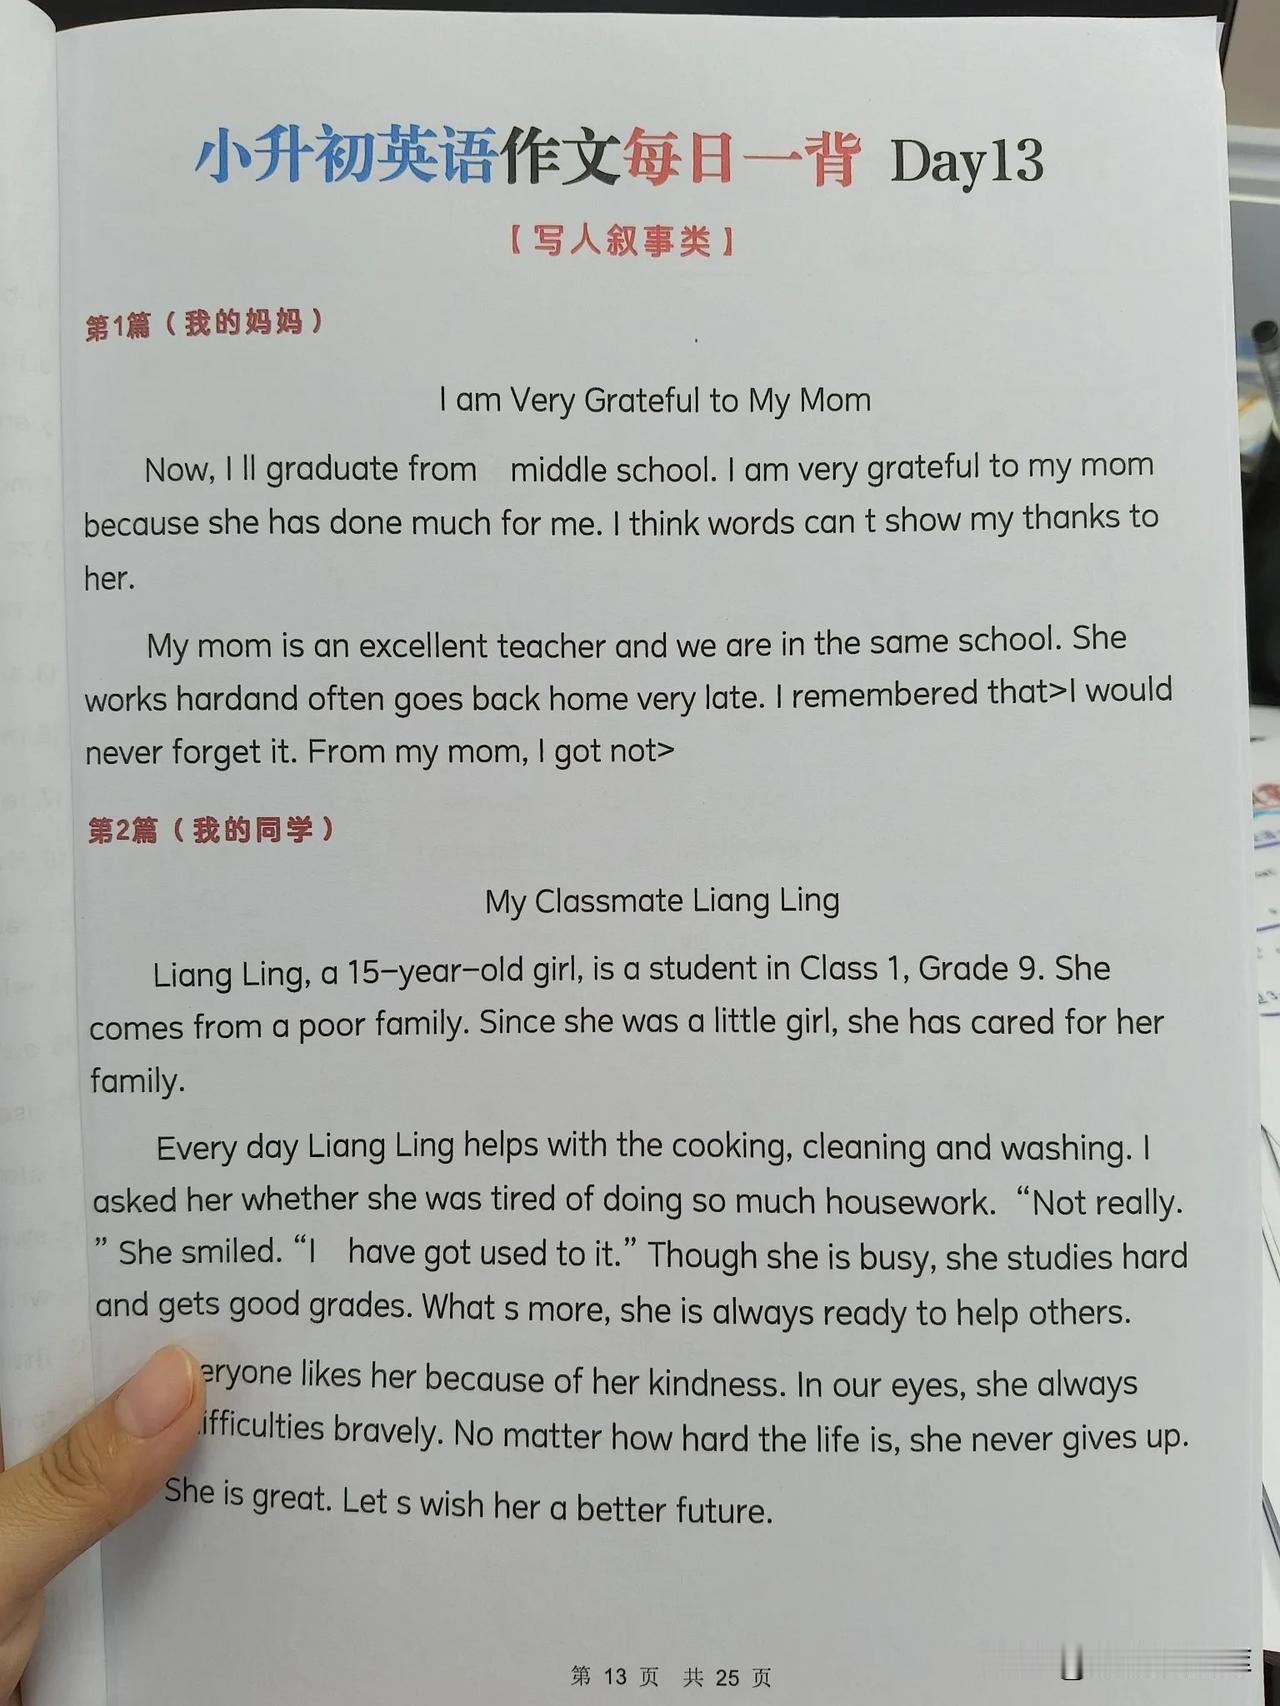 小升初英语作文每日一背 Day13
【写人叙事类】
第1篇（我的妈妈）
I am Very Grateful to My Mom
Now, I ll graduate from middle school. I am very grateful to my mom
because she has done much for me. I think words can t show my thanks to
her.
My mom is an excellent teacher and we are in the same school. She
works hardand often goes back home very late. I remembered that>I would
never forget it. From my mom, I got not>
第2篇（我的同学）
My Classmate Liang Ling
Liang Ling, a 15-year-old girl, is a student in Class 1, Grade 9. She
comes from a poor family. Since she was a little girl, she has cared for her
family.
Every day Liang Ling helps with the cooking, cleaning and washing. I
asked her whether she was tired of doing so much housework. “Not really.
” She smiled. “I have got used to it.” Though she is busy, she studies hard
and gets good grades. What s more, she is always ready to help others.
eryone likes her because of her kindness. In our eyes, she always
ifficulties bravely. No matter how hard the life is, she never gives up.
She is great. Let s wish her a better future.
第 13 页 共 25 页